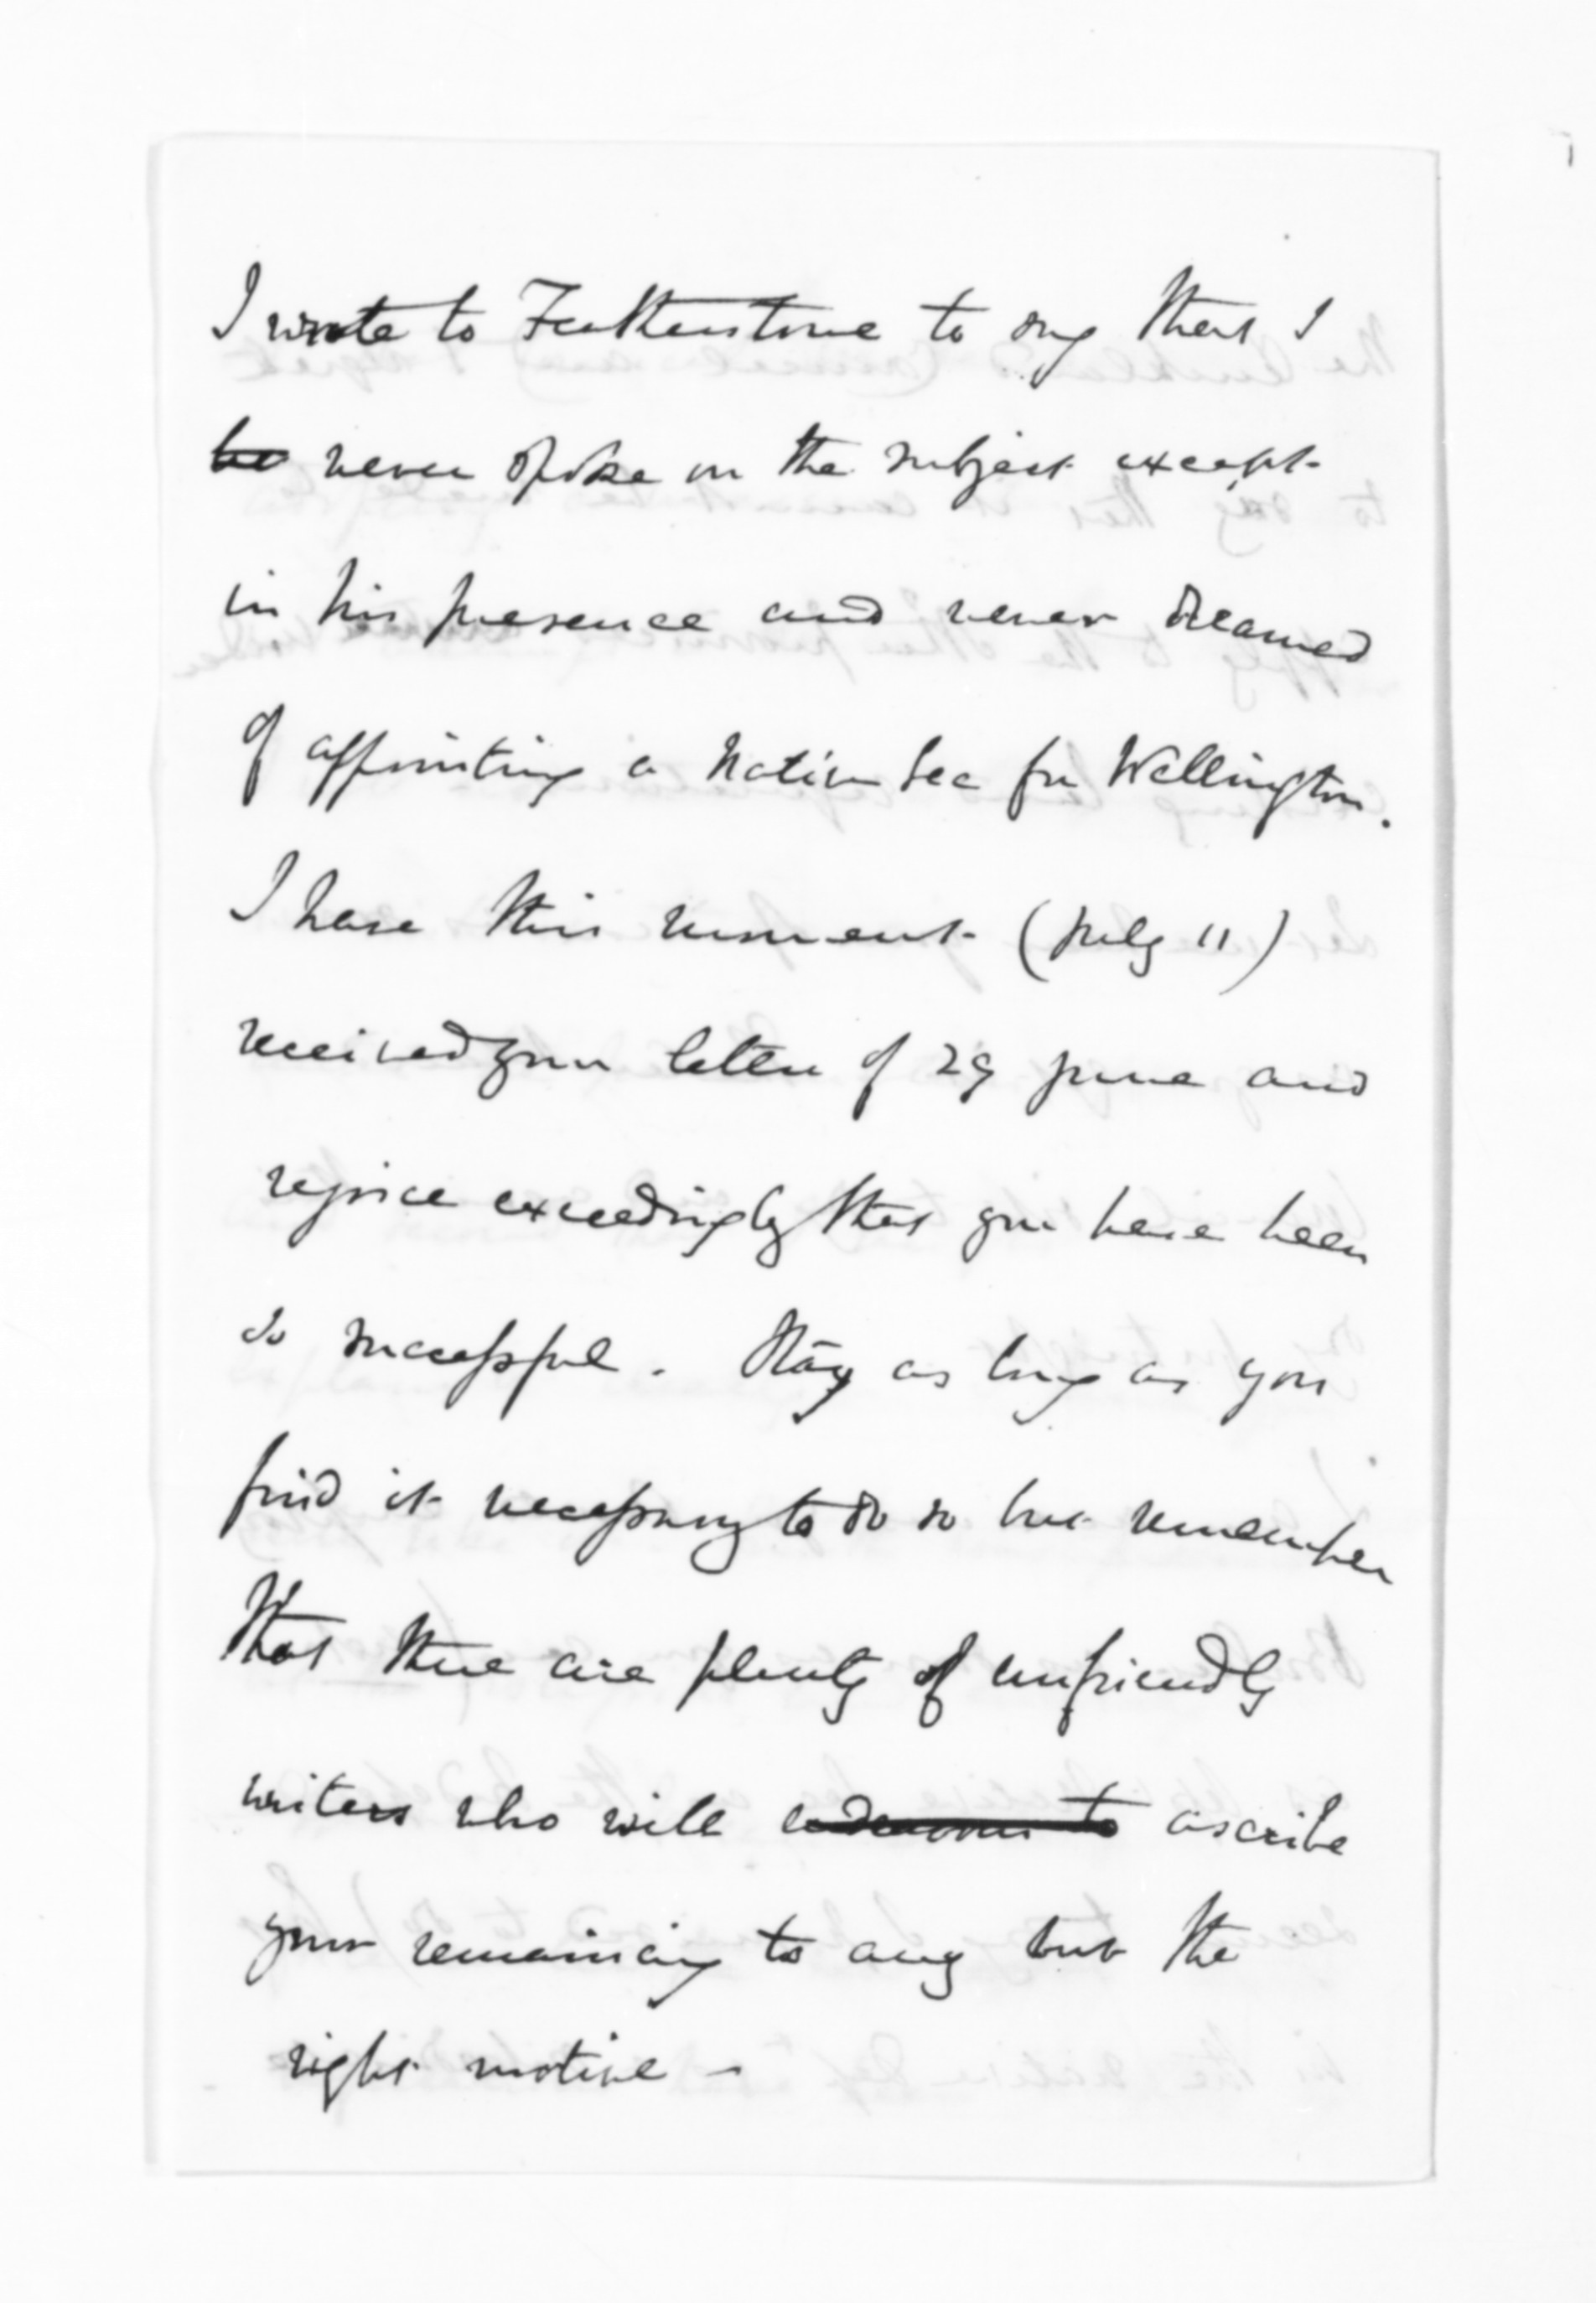 I wrote to Featherstone to say that I
never spoke on the subject except
in his presence and never dreamed
of appointing a Native Sec for Wellington.
I have this moment (July 11)
received your letter of 29 June and
rejoice exceedingly that you have been
so successful. Stay as long as you
find it necessary to do so but remember
that there are plenty of unfriendly
writers who will endeavour to ascribe
your remaining to any but the
right motive -